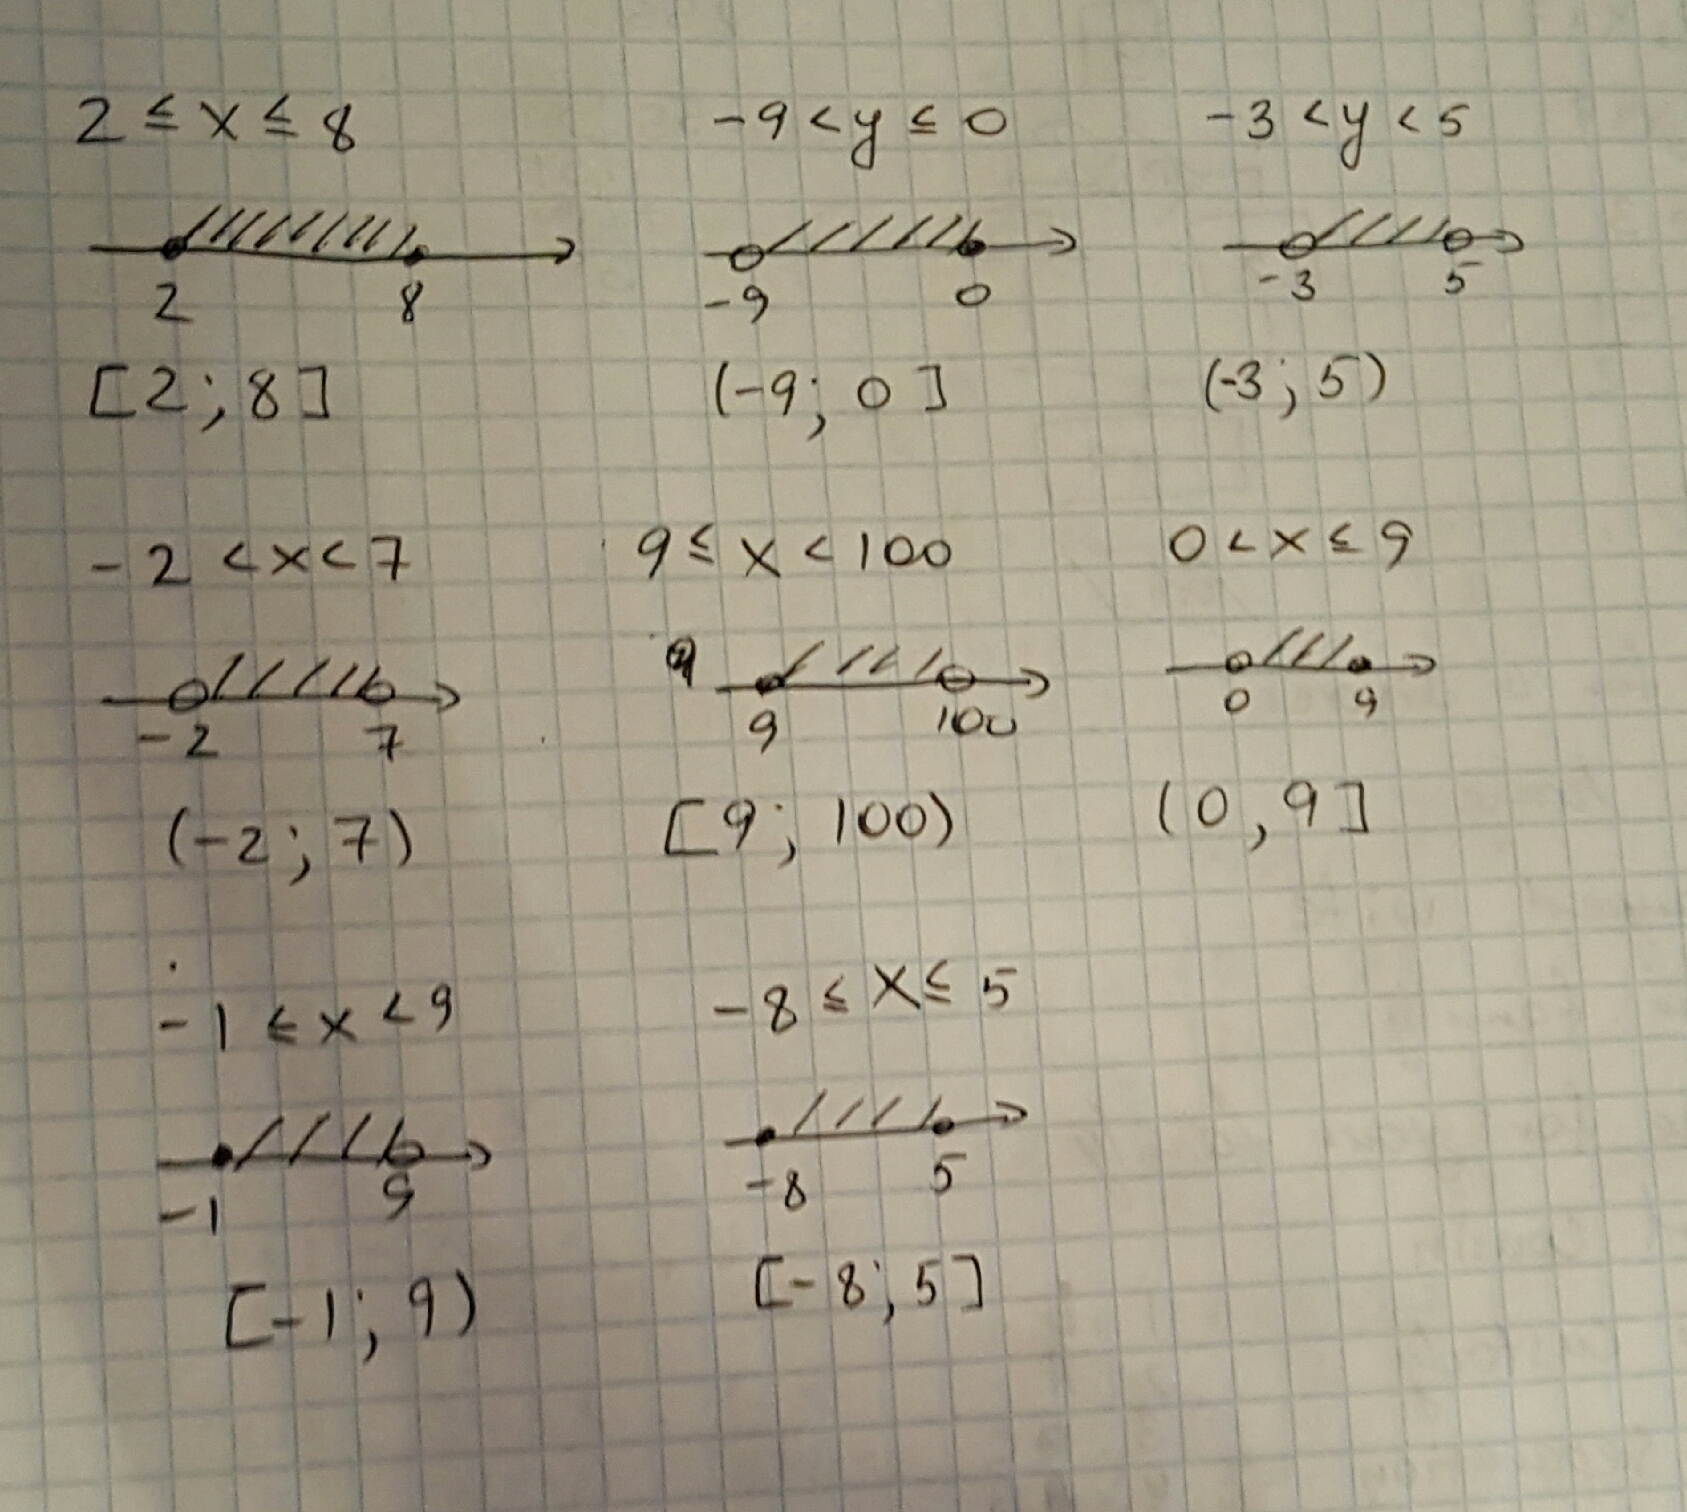 2 ≤ x ≤ 8
2 8
[2; 8]
-9 < y ≤ 0
-9 0
(-9; 0]
-3 < y < 5
-3 5
(-3; 5)
-2 < x < 7
-2 7
(-2; 7)
9 ≤ x < 100
9 100
[9; 100)
0 < x ≤ 9
0 9
(0, 9]
-1 ≤ x < 9
-1 9
[-1; 9)
-8 ≤ x ≤ 5
-8 5
[-8; 5]